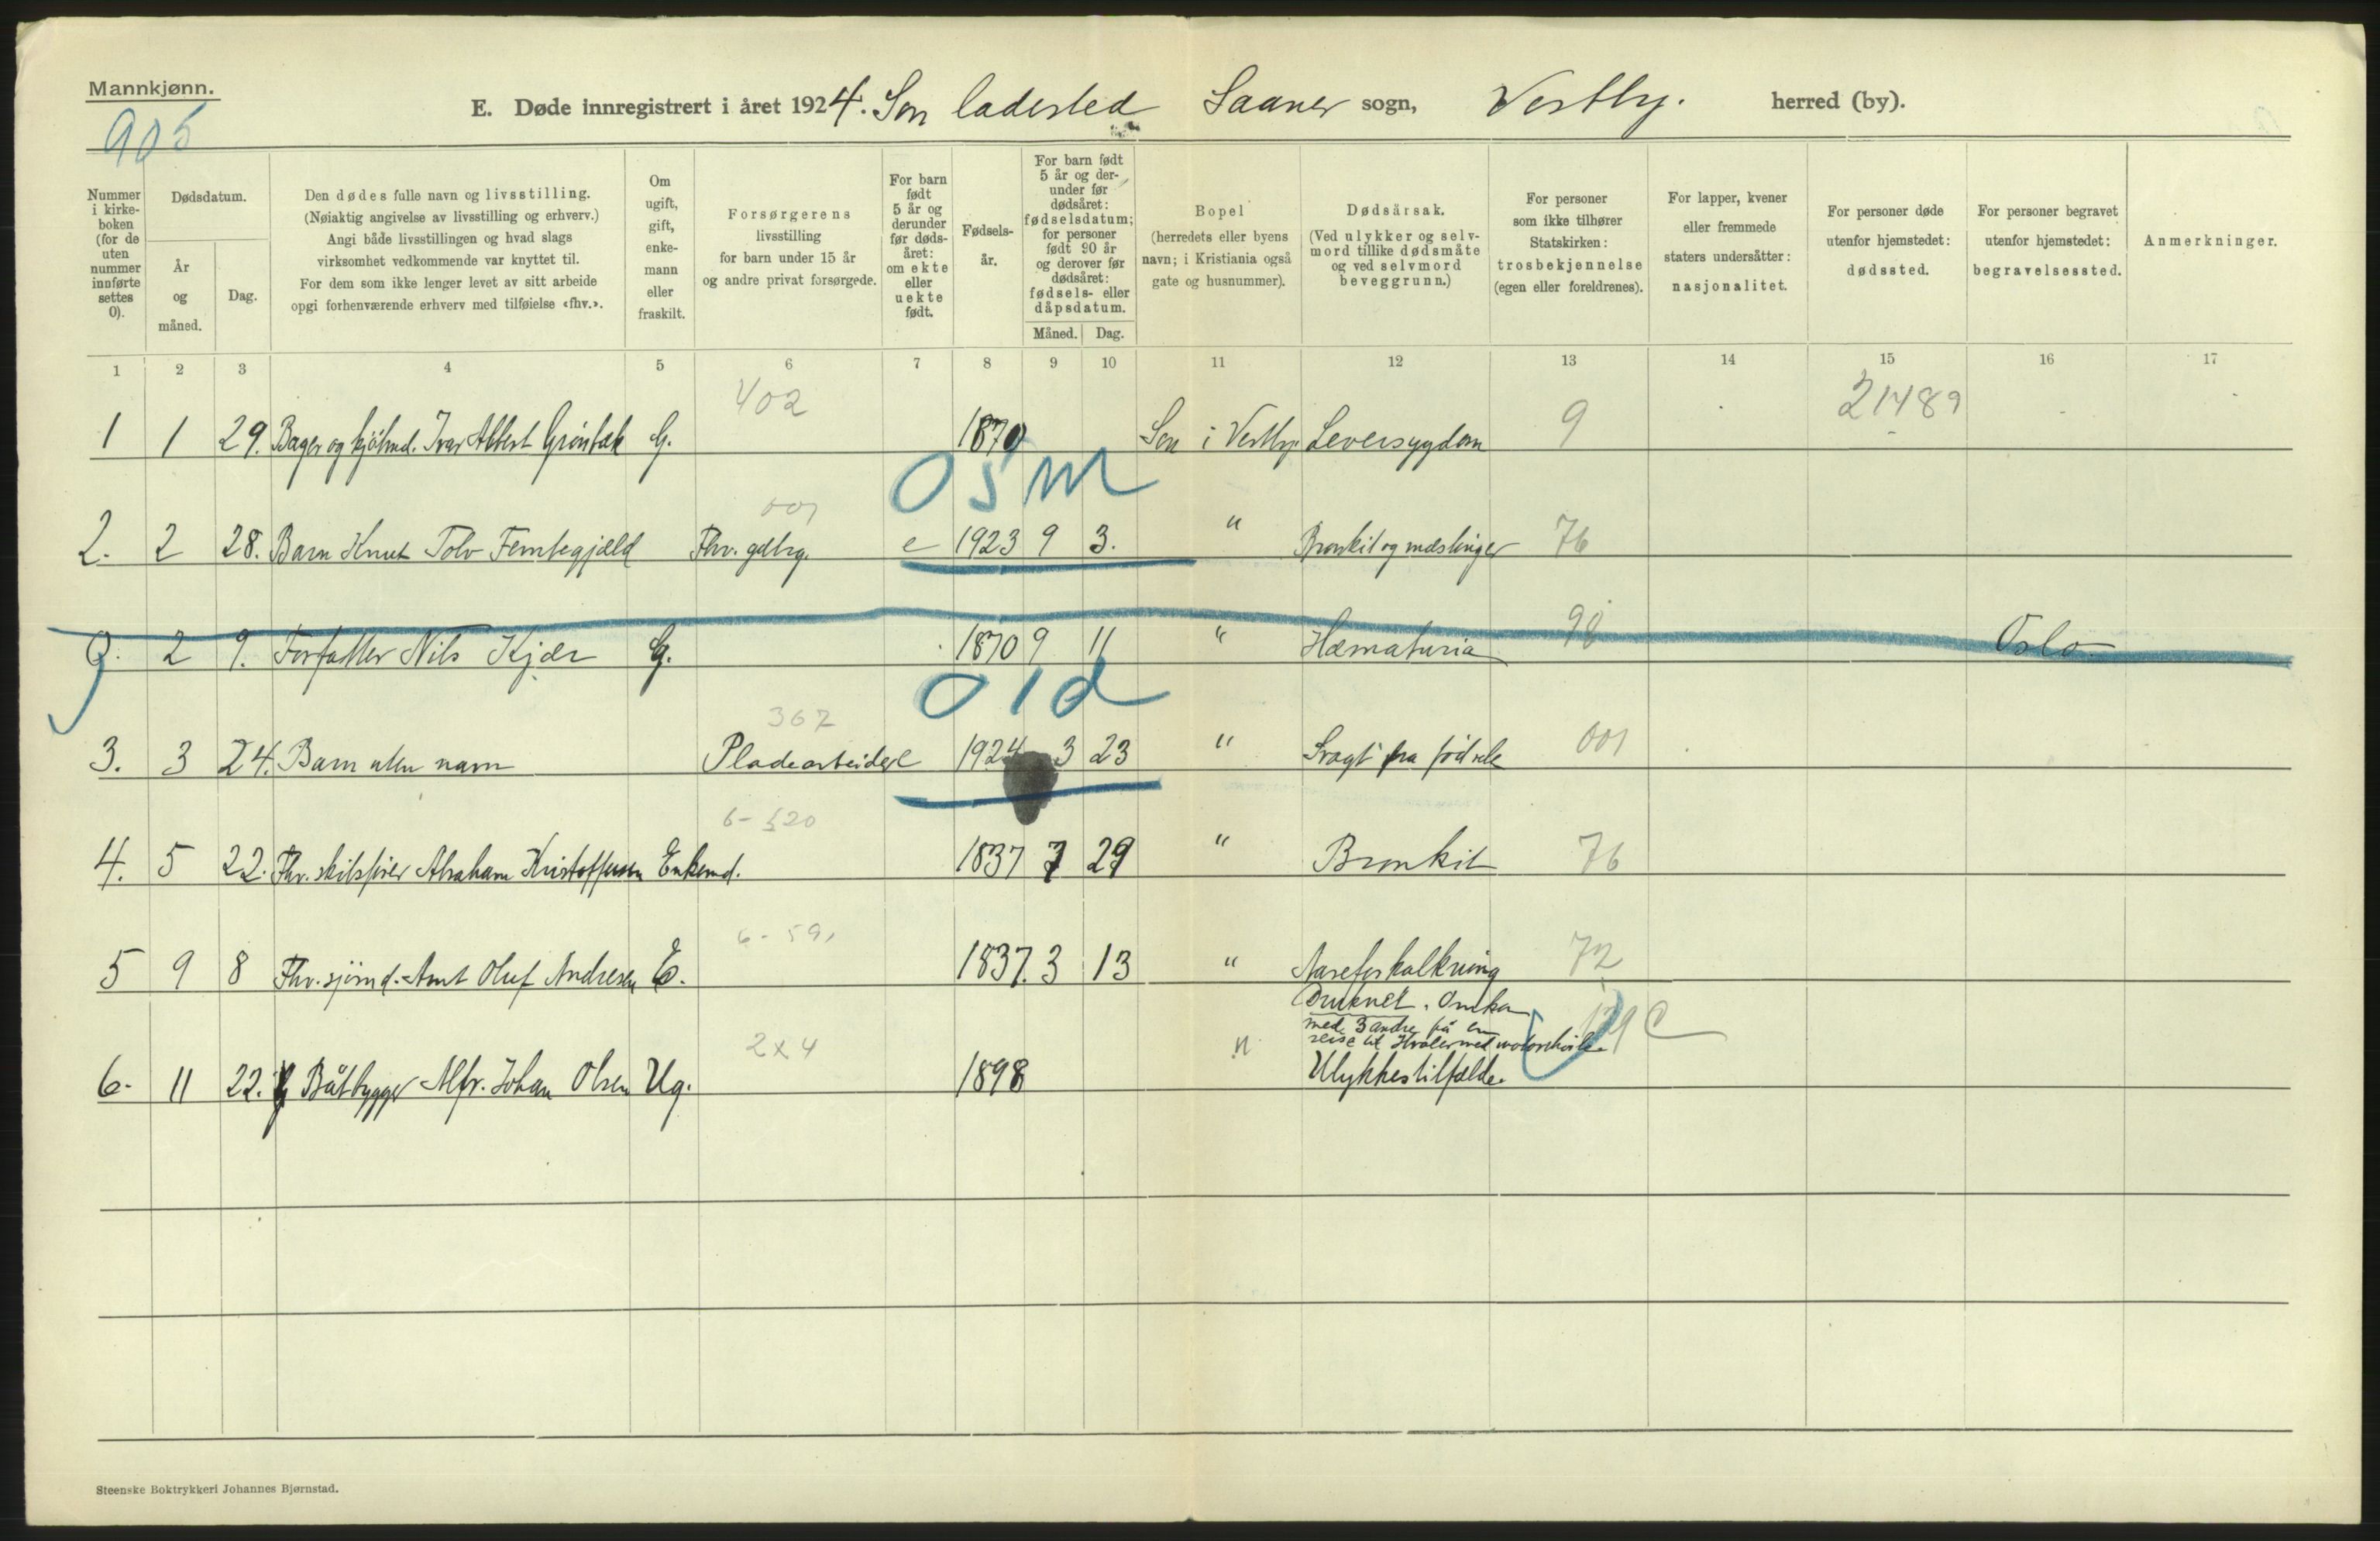 Mannkjønn.
905
E. Døde innregistrert i året 1924. Son ladested Saaner sogn, Vestby. herred (by).
Nummer i kirke-boken (for de uten nummer innførte settes 0).
Dødsdatum.
År og måned.
Dag.
Den dødes fulle navn og livsstilling.
(Nøiaktig angivelse av livsstilling og erhverv.)
Angi både livsstillingen og hvad slags
virksomhet vedkommende var knyttet til.
For dem som ikke lenger levet av sitt arbeide
opgi forhenværende erhverv med tilføielse «fhv.».
Om ugift, gift, enke-mann eller fraskilt.
Forsørgerens
livsstilling
for barn under 15 år
og andre privat forsørgede.
For barn født 5 år og derunder før døds-året: om ekte eller uekte født.
Fødsels-år.
For barn født 5 år og der-under før dødsåret: fødselsdatum; for personer født 90 år og derover før dødsåret: fødsels- eller dåpsdatum.
Måned. Dag.
Bopel
(herredets eller byens
navn; i Kristiania også
gate og husnummer).
Dødsårsak.
(Ved ulykker og selv-
mord tillike dødsmåte
og ved selvmord
beveggrunn.)
For personer
som ikke tilhører
Statskirken:
trosbekjennelse
(egen eller foreldrenes).
For lapper, kvener
eller fremmede
staters undersåtter:
nasjonalitet.
For personer døde
utenfor hjemstedet:
dødssted.
For personer begravet
utenfor hjemstedet:
begravelsessted.
Anmerkninger.
1 2 3 4 5 6 7 8 9 10 11 12 13 14 15 16 17
402 21489
1 1 29. Bager og kjøbmd. Ivar Albert G. 1870 Son i Vestby Leversygdom 9
05m
001
2. 2 28. Barn Knut Tolv Femtegjeld Fhv. gdbrg. e 1923 9 3. " Bronkit og mæslinger 76
0. 2 9. Forfatter Nils Kjær G. 1870 9 11 " Hæmaturia 98 Oslo
01d
367
3. 3 24. Barn uten navn Pladearbeider e 1924 3 23 " Svagt fra fødsele 001
6-520
4. 5 22. Fhv. skibsfører Abraham Kristoffersen Enkemd. 1837 7 29 " Bronkit 76
6-591
5 9 8 Fhv. sjømd. Amt Oluf Andresen E. 1837. 3 13 " Aareforkalkning 72
Druknet. Omkom
med 3 andre på en
reise til Hvaler med motorskøite.
2x4 179 C
6. 11 22. Båtbygger Alfr. Johan Olsen Ug. 1898 " Ulykkestilfælde.
Steenske Boktrykkeri Johannes Bjørnstad.